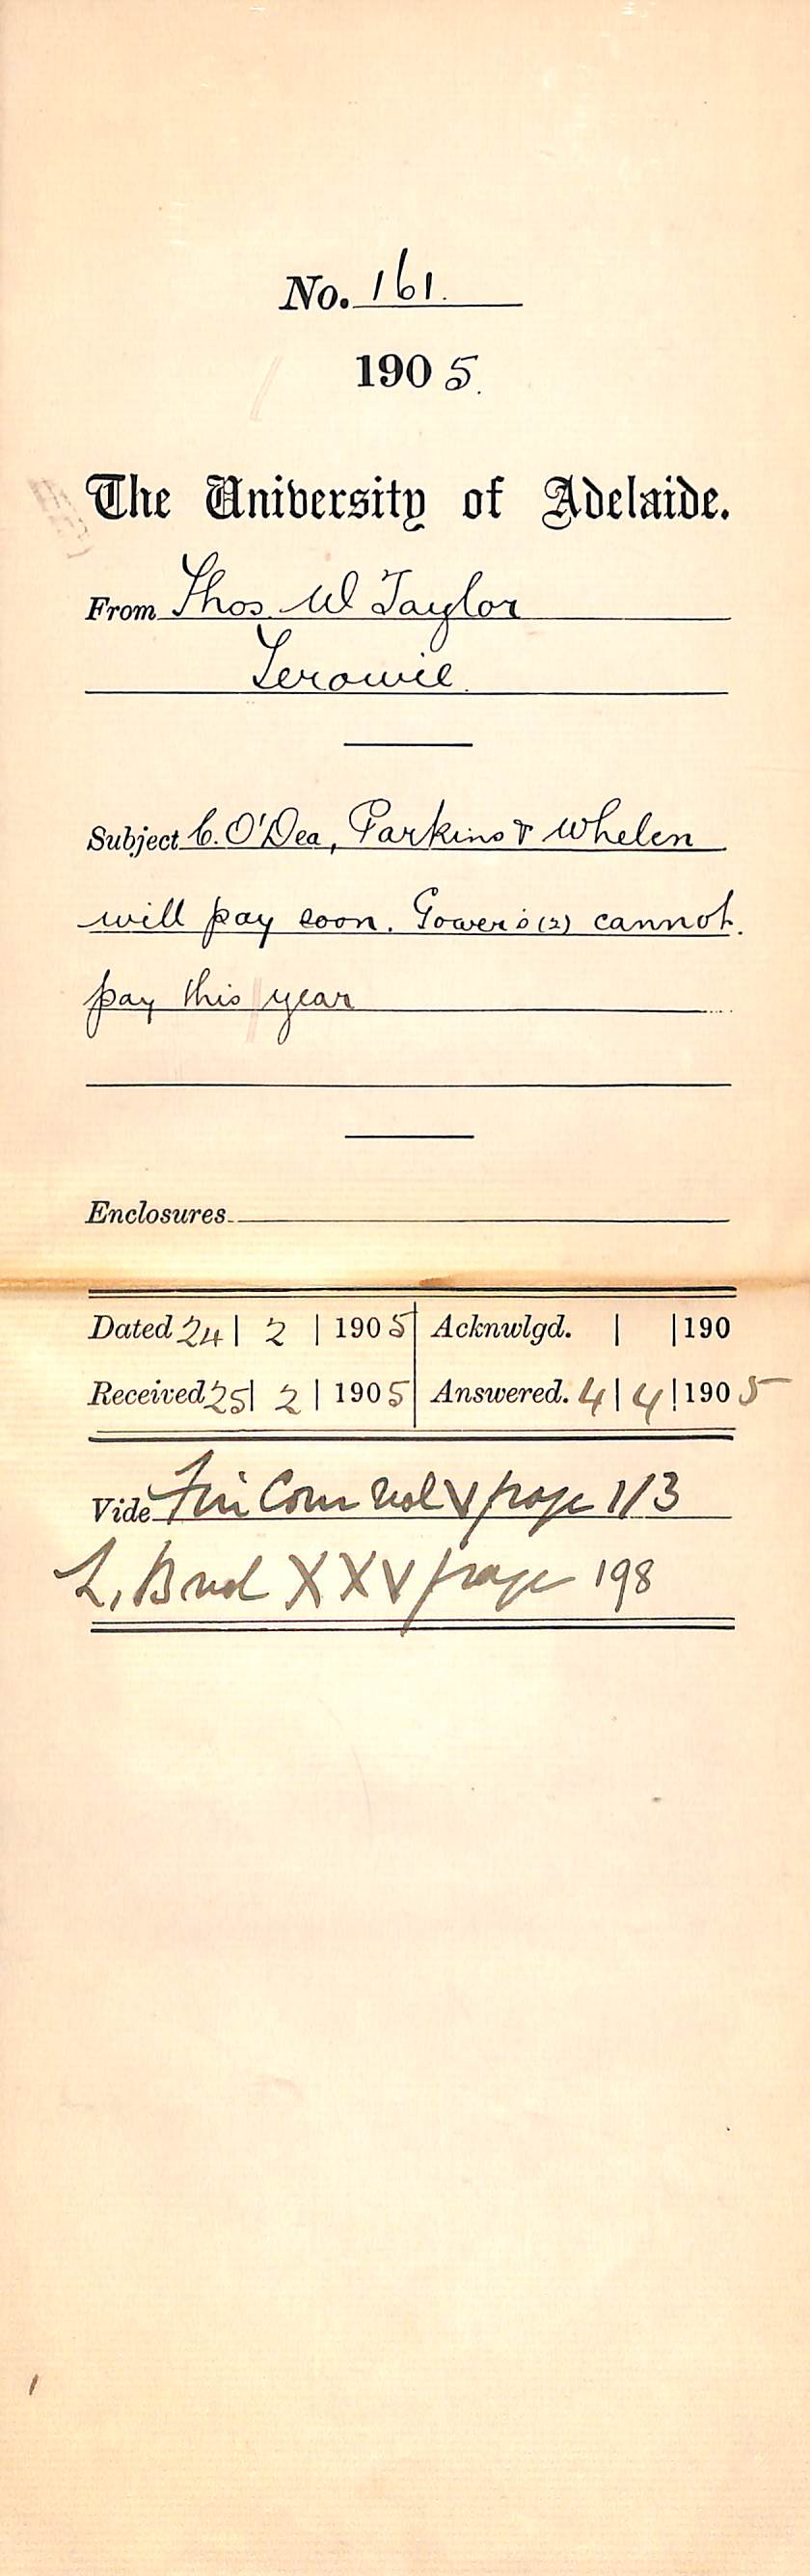 No. 161.
1905.
The University of Adelaide.
From Thos. W Taylor
Terowie.
Subject C. O'Dea, Parkins & Whelen
will pay soon. Gower's (2) cannot.
pay this year
Enclosures
Dated 24 | 2 | 1905 Acknwlgd. | | 190
Received 25 | 2 | 1905 Answered. 4 | 4 | 1905
Vide Fin Com vol V page 113
L, B vol XXV page 198